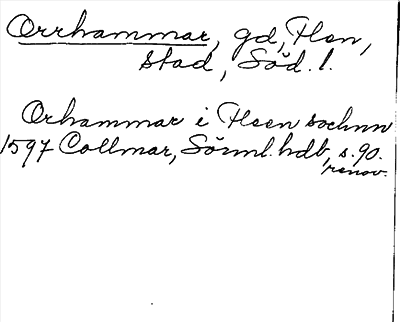 Orrhammar, gd, Flen,
stad, Söd. l.
Orhammar i Fleen sochnn
1597 Collmar, Sörml. hdb, s. 90.
renov.